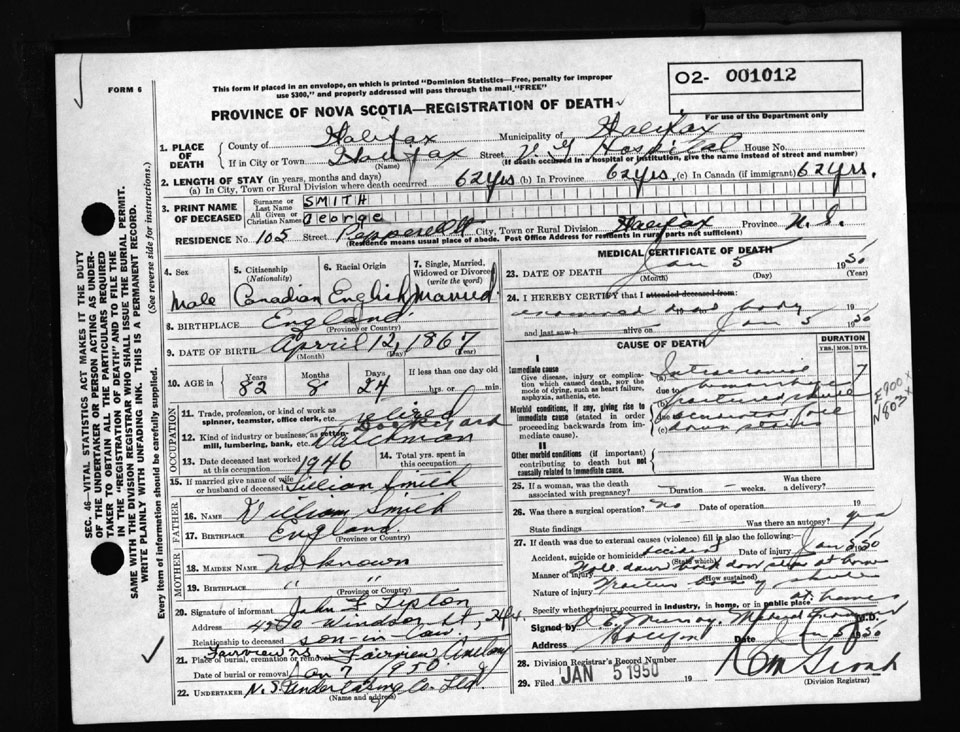 FORM 6
This form if placed in an envelope, on which is printed "Dominion Statistics—Free, penalty for improper
use $300," and properly addressed will pass through the mail "FREE"
PROVINCE OF NOVA SCOTIA—REGISTRATION OF DEATH
O2- 001012
For use of the Department only
1. PLACE OF DEATH
County of Halifax Municipality of Halifax
If in City or Town Halifax Street V G Hospital House No.
(Name) (If death occurred in a hospital or institution, give the name instead of street and number)
2. LENGTH OF STAY (in years, months and days)
(a) In City, Town or Rural Division where death occurred 62 yrs (b) In Province 62 yrs. (c) In Canada (if immigrant) 62 yrs.
3. PRINT NAME OF DECEASED
Surname or Last Name SMITH
All Given or Christian Names George
RESIDENCE No. 105 Street Pepperell City, Town or Rural Division Halifax Province N.S.
(Residence means usual place of abode. Post Office Address for residents in rural parts not sufficient)
4. Sex Male
5. Citizenship (Nationality) Canadian
6. Racial Origin English
7. Single, Married, Widowed or Divorced (write the word) Married
8. BIRTHPLACE England
(Province or Country)
9. DATE OF BIRTH April 12, 1867
(Month) (Day) (Year)
10. AGE in Years 82 Months 8 Days 24 If less than one day old hrs. or min.
OCCUPATION
11. Trade, profession, or kind of work as spinner, teamster, office clerk, etc. retired
12. Kind of industry or business, as cotton mill, lumbering, bank, etc. Dockyard Watchman
13. Date deceased last worked at this occupation 1946
14. Total yrs. spent in this occupation
15. If married give name of wife or husband of deceased Lillian Smith
FATHER
16. NAME William Smith
17. BIRTHPLACE England
(Province or Country)
MOTHER
18. MAIDEN NAME Not known
19. BIRTHPLACE " "
(Province or Country)
20. Signature of informant John F Lipton
Address Windsor St, Hfx
Relationship to deceased son-in law.
Fairview NS Fairview
21. Place of burial, cremation or removal
Date of burial or removal Jan 7 1950
22. UNDERTAKER N.S. Undertaking Co. Ltd.
(Name and address)
MEDICAL CERTIFICATE OF DEATH
23. DATE OF DEATH Jan 5 1950
(Month) (Day) (Year)
24. I HEREBY CERTIFY that I attended deceased from:
examined dead body 19
and last saw h alive on Jan 5 1950
CAUSE OF DEATH
DURATION
YRS. MOS. DYS.
I
Immediate cause
Give disease, injury or complication which caused death, not the mode of dying, such as heart failure, asphyxia, asthenia, etc.
(a) Intracranial hemorrhage
due to
(b) fractured skull
Morbid conditions, if any, giving rise to immediate cause (stated in order proceeding backwards from immediate cause).
due to
(c) down stairs
E900 x
N803 x
II
Other morbid conditions (if important) contributing to death but not causally related to immediate cause.
25. If a woman, was the death associated with pregnancy? Duration weeks. Was there a delivery?
26. Was there a surgical operation? no Date of operation 19
State findings Was there an autopsy? yes
27. If death was due to external causes (violence) fill in also the following:
Accident, suicide or homicide? accident Date of injury Jan 5 50
(State which)
Manner of injury Fell down back door steps at home
(How sustained)
Nature of injury Fracture of skull
Specify whether injury occurred in industry, in home, or in public place at home
Signed by Murray, Medical Examiner M.D.
Address Date Jan 5 1950
28. Division Registrar's Record Number
29. Filed JAN 5 1950 19
(Division Registrar)
SEC. 46—VITAL STATISTICS ACT MAKES IT THE DUTY
OF THE UNDERTAKER OR PERSON ACTING AS UNDERTAKER
TO OBTAIN ALL THE PARTICULARS REQUIRED
IN THE "REGISTRATION OF DEATH" AND TO FILE THE
SAME WITH THE DIVISION REGISTRAR WHO SHALL ISSUE THE BURIAL PERMIT.
WRITE PLAINLY WITH UNFADING INK. THIS IS A PERMANENT RECORD.
Every item of information should be carefully supplied. (See reverse side for instructions.)